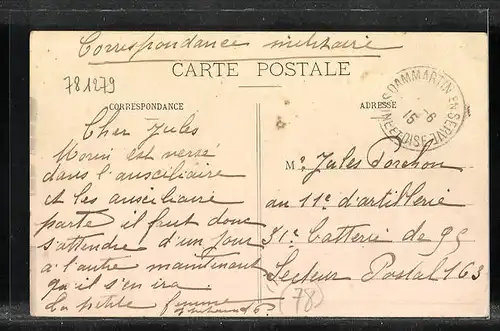 Correspondance militaire
781279
CARTE POSTALE
CORRESPONDANCE
ADRESSE
DAMMARTIN-EN-SERVE
SEINE-ET-OISE
-6
15
Cher Jules
Morin est versé
dans l'auxciliaire
et les auxciliaire
parte il faut donc
s'attendre d'un jour
a l'autre maintenant
qu'il s'en ira
La petite femme
Mr Jules Porchon
au 11e d'artillerie
51e batterie de 95
Secteur Postal 163
(78)